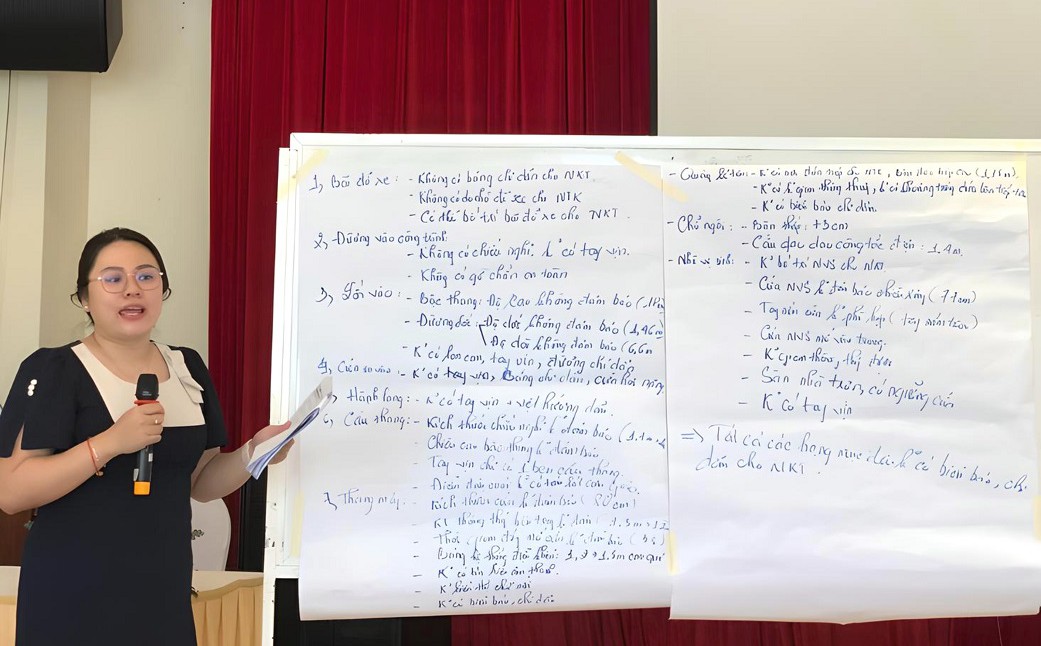 1, Bãi đỗ xe: - Không có bảng chỉ dẫn cho NKT
- Không có chỗ để xe cho NTK
- Có thể bố trí bãi đỗ xe cho NKT.
2, Đường vào công trình:
- Không có chiếu nghỉ. k° có tay vịn.
- Không có gờ chắn an toàn
3, Lối vào: - Bậc thang: Độ cao không đảm bảo
- Đường dốc: Độ dốc không đảm bảo (1,46m
Độ dài không đảm bảo (6,6m
- K° có lan can, tay vịn, đường chỉ dẫn
4, Cửa ra vào: - K° có tay vịn, bảng chỉ dẫn, cửa hơi nặng
Hành lang: - K° có tay vịn + vật hướng dẫn.
Cầu thang: - Kích thước chiếu nghỉ k° đảm bảo
- Chiều cao bậc thang k° đảm bảo
- Tay vịn chỉ có 1 bên cầu thang.
- Điểm đầu cuối k° có
7, Thang máy: - Kích thước cửa k° đảm bảo (80cm)
- KT thông thủy bên trong k° đảm
- Thời gian đóng mở cửa k° đảm bảo
- Bảng hệ thống điều khiển: 1,2 → 1,5m
- K° có tín hiệu âm thanh.
- K° hiển thị chữ nổi
- K° có biển báo, chỉ dẫn
- Quầy lễ tân - K° có
- K° có k gian thông thủy, k° có khoảng trống
- K° có biển báo chỉ dẫn.
- Chỗ ngồi: - Bàn thấp: +3cm
- Cầu dao công tắc điện: 1,4m.
- Nhà vệ sinh: - K° bố trí NVS cho NKT.
- Cửa NVS k° đảm bảo chiều rộng (77cm)
- Tay nắm cửa k° phù hợp (tay nắm tròn)
- Cửa NVS mở vào trong.
- K° gian
- Sàn nhà trơn, có ngưỡng cửa
- K° có tay vịn
=> Tất cả các hạng mục đều k° có biển báo, chỉ
dẫn cho NKT.